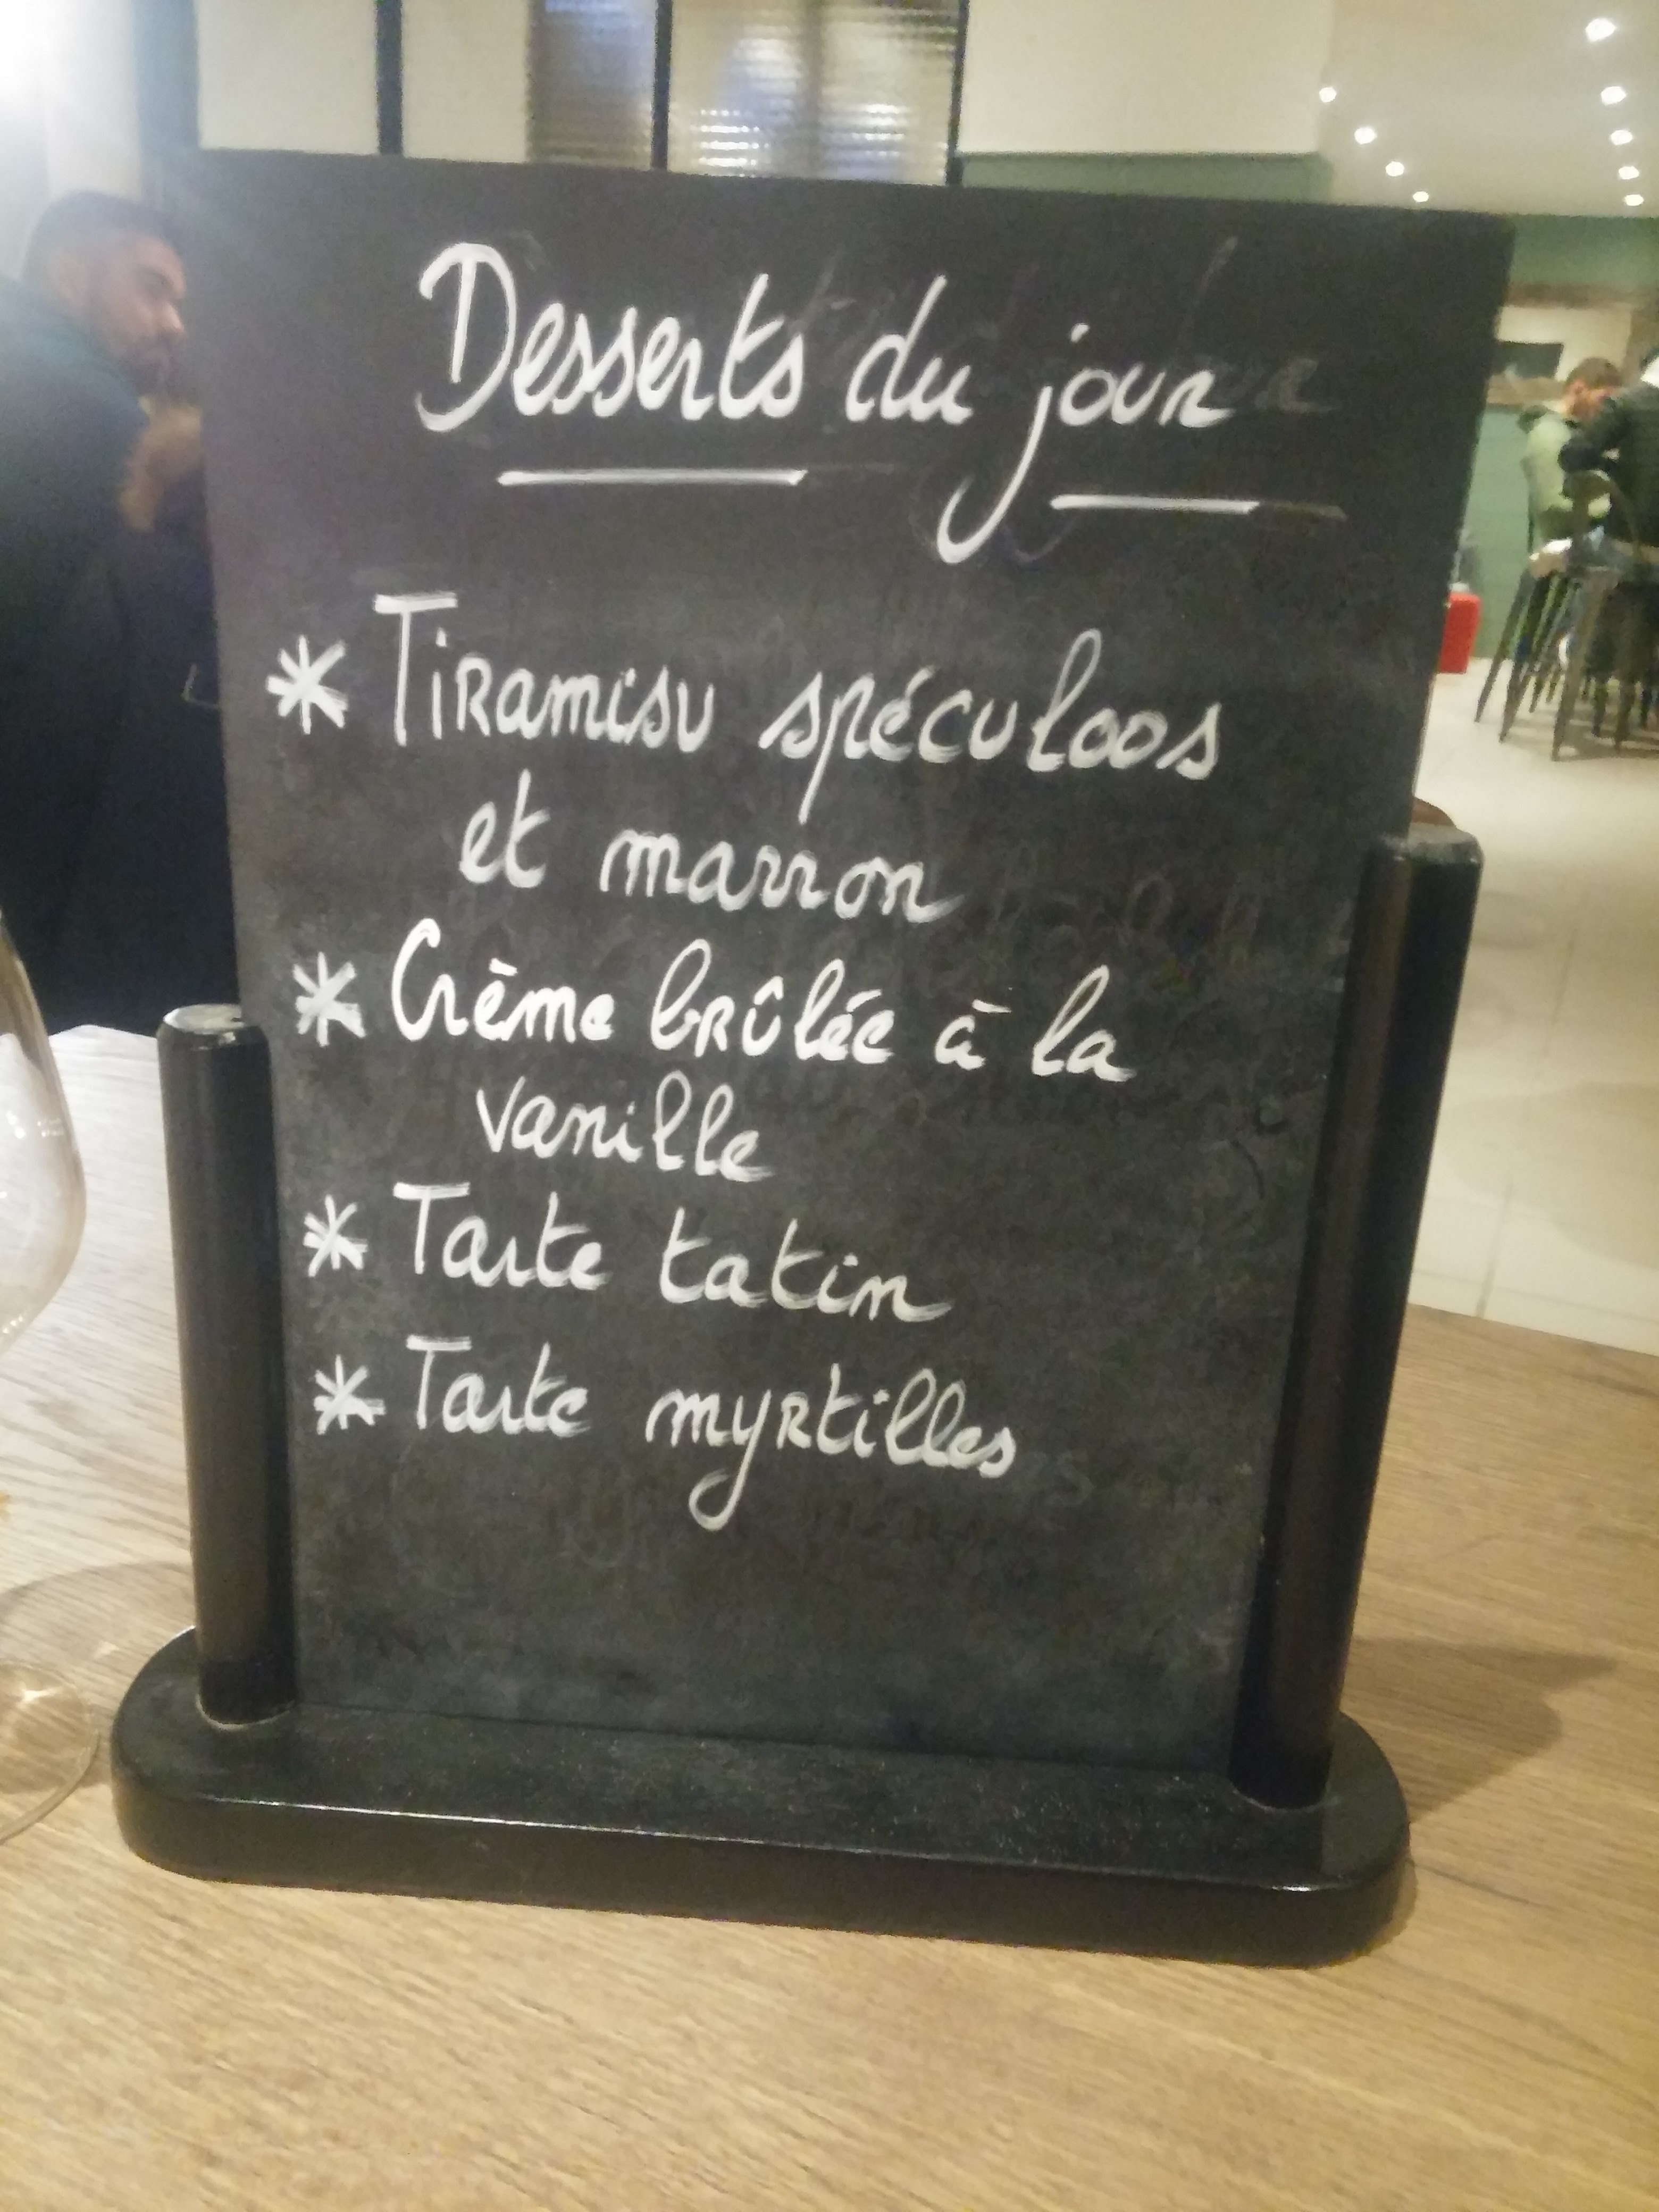 Desserts du jour
* Tiramisu spéculoos
et marron
* Crème brûlée à la
vanille
* Tarte tatin
* Tarte myrtilles